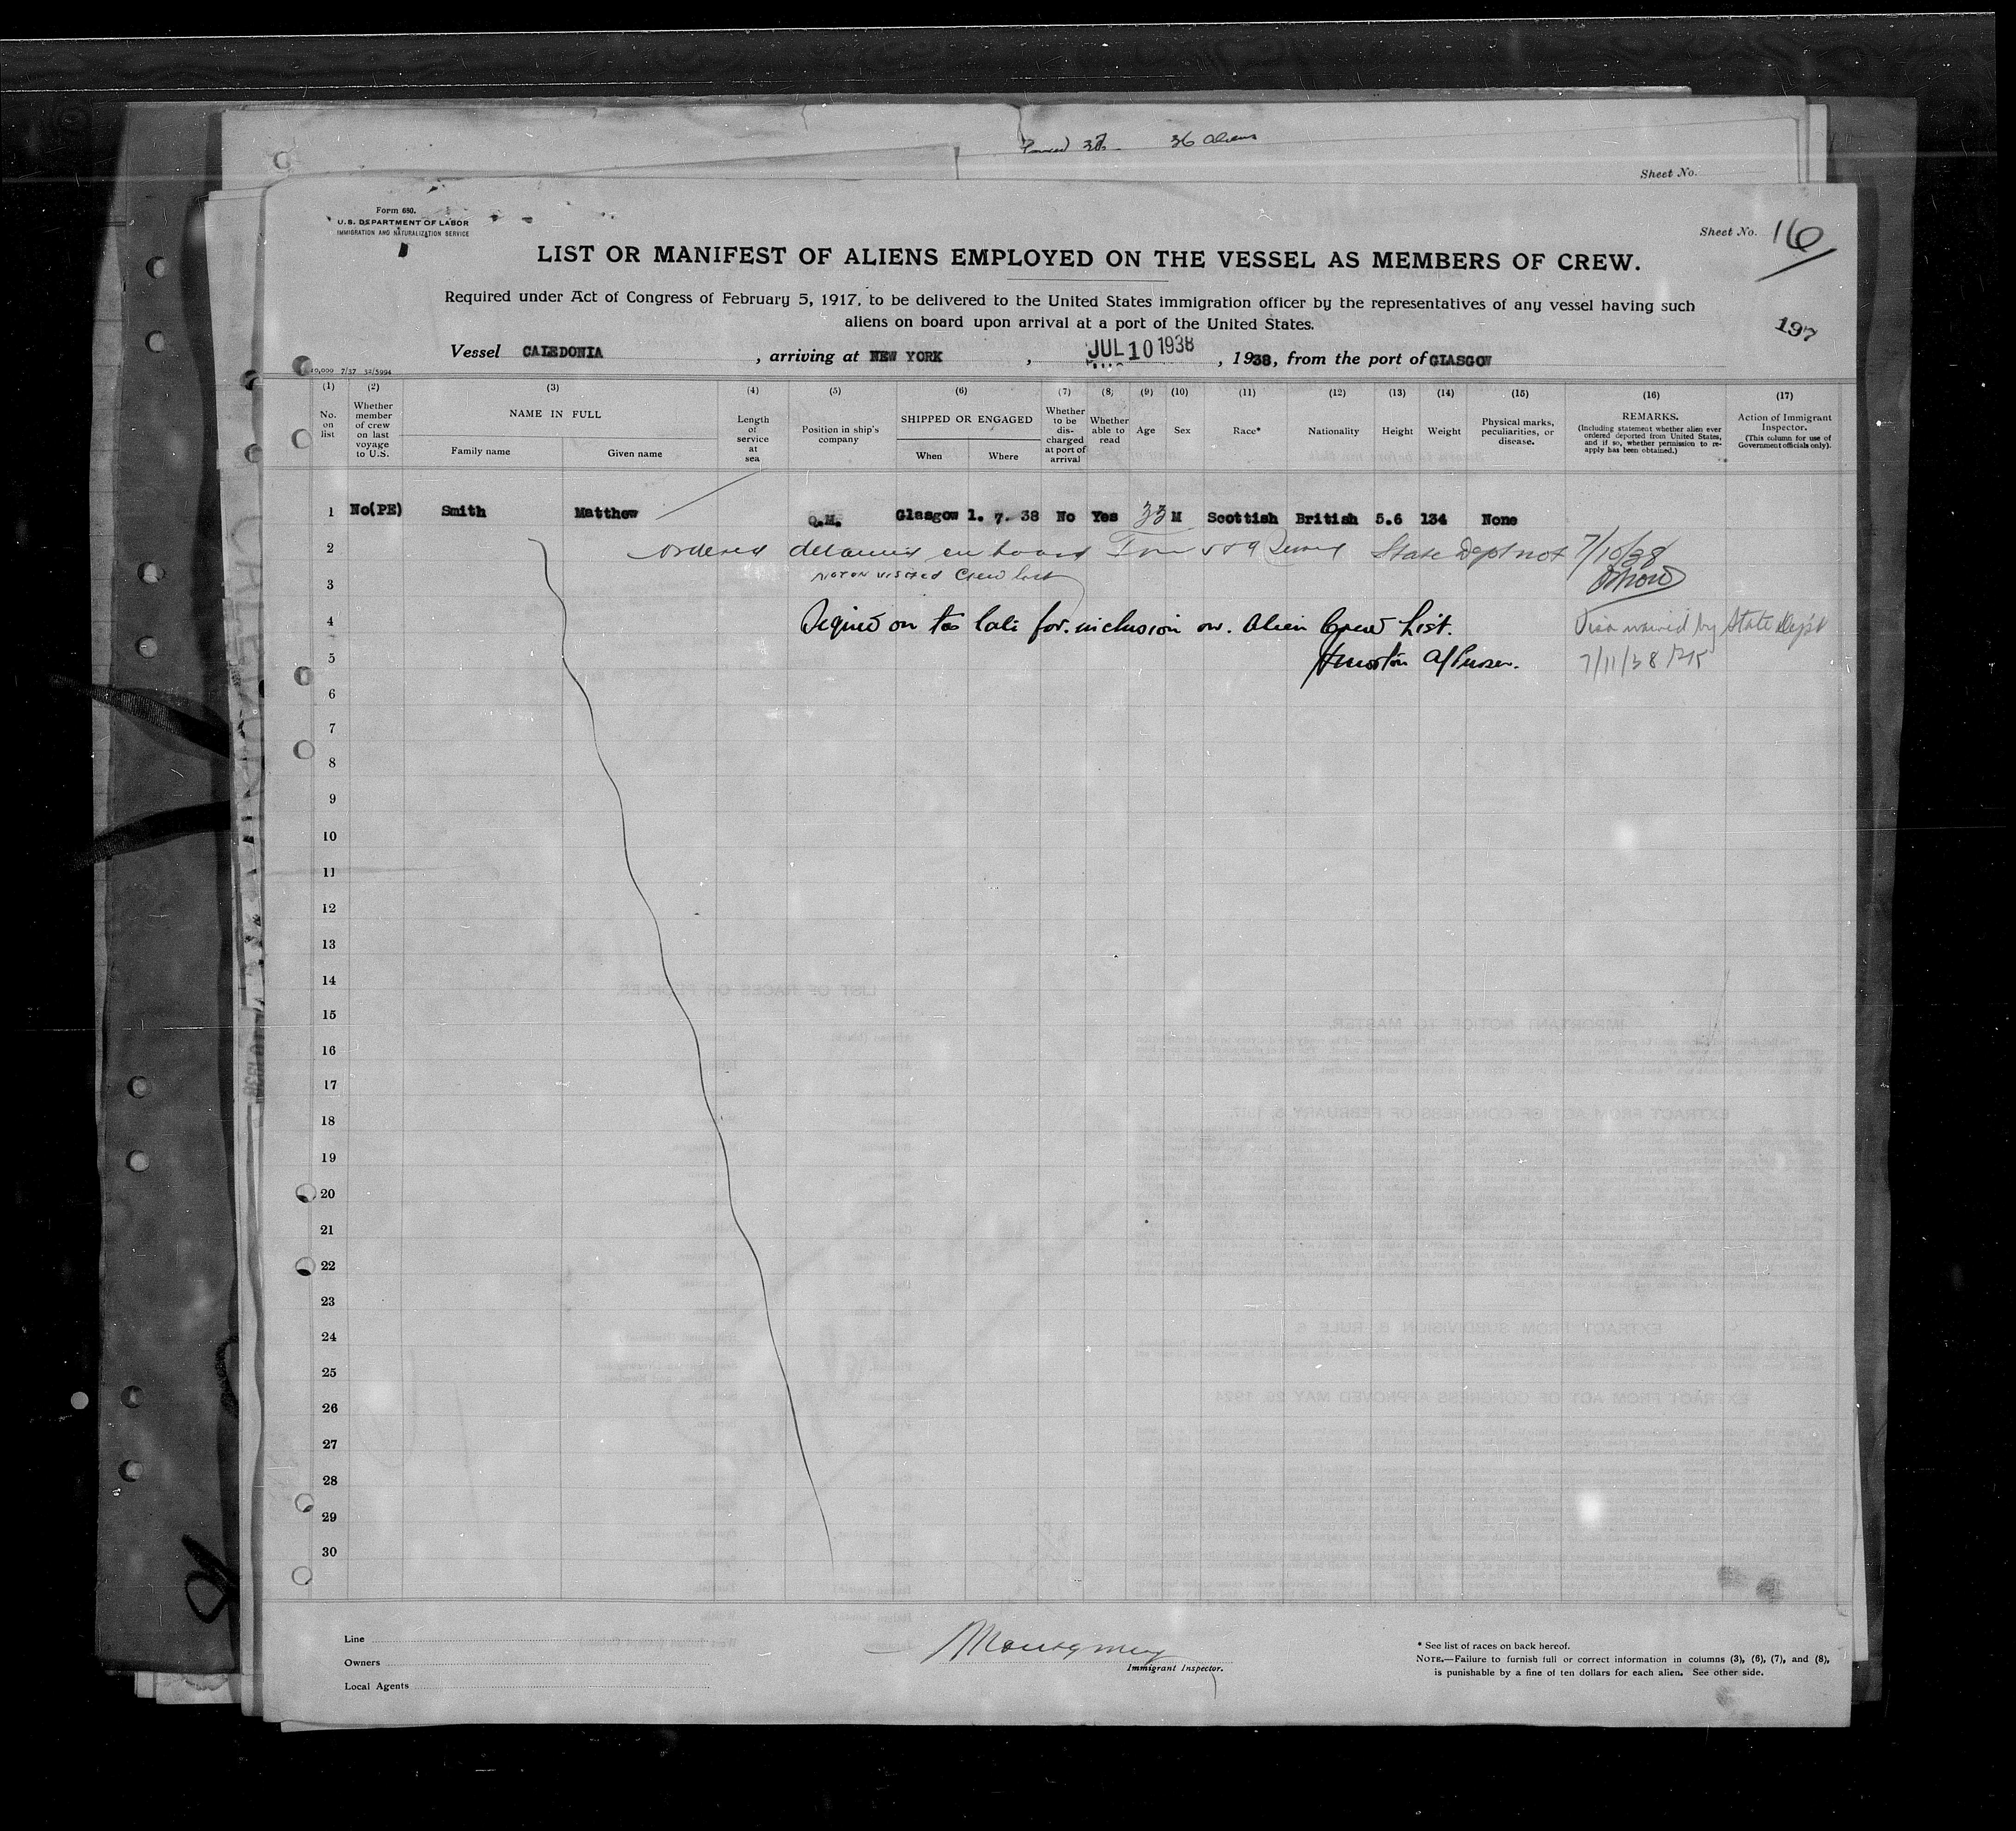 36 Aliens
Sheet No.
Form 680.
U.S. DEPARTMENT OF LABOR
IMMIGRATION AND NATURALIZATION SERVICE
Sheet No. 16
LIST OR MANIFEST OF ALIENS EMPLOYED ON THE VESSEL AS MEMBERS OF CREW.
Required under Act of Congress of February 5, 1917, to be delivered to the United States immigration officer by the representatives of any vessel having such
aliens on board upon arrival at a port of the United States.
197
Vessel CALEDONIA , arriving at NEW YORK , JUL 10 1938 , 1938, from the port of GLASGOW
(1) (2) (3) (4) (5) (6) (7) (8) (9) (10) (11) (12) (13) (14) (15) (16) (17)
No. on list
Whether member of crew on last voyage to U.S.
NAME IN FULL
Family name
Given name
Length of service at sea
Position in ship's company
SHIPPED OR ENGAGED
When
Where
Whether to be discharged at port of arrival
Whether able to read
Age
Sex
Race*
Nationality
Height
Weight
Physical marks, peculiarities, or disease.
REMARKS.
(Including statement whether alien ever ordered deported from United States, and if so, whether permission to reapply has been obtained.)
Action of Immigrant Inspector.
(This column for use of Government officials only).
1 No(PE) Smith Matthew Q.M. Glasgow 1. 7. 38 No Yes 33 M Scottish British 5.6 134 None
2 ordered detained on board State Dept not 7/10/38
3 not on visaed Crew list
4 Signed on too late for inclusion on Alien Crew List. Visa waived by State Dept
5 7/11/38
6
7
8
9
10
11
12
13
14
15
16
17
18
19
20
21
22
23
24
25
26
27
28
29
30
Line
Owners
Local Agents
Montgomery
Immigrant Inspector.
* See list of races on back hereof.
NOTE.—Failure to furnish full or correct information in columns (3), (6), (7), and (8),
is punishable by a fine of ten dollars for each alien. See other side.